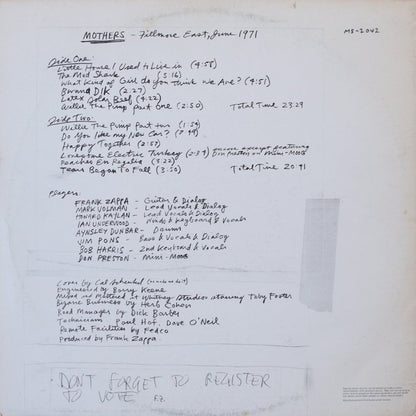 MOTHERS - Fillmore East, June 1971
MS-2042
Side One:
Little House I Used to Live in (4:58)
The Mud Shark (5:16)
What Kind of Girl do you Think We Are? (4:51)
Bwana Dik (2:27)
Latex Solar Beef (4:22)
Willie The Pump Part One (2:50) Total Time 23:29
Side Two:
Willie The Pump Part two (1:54)
Do You Like My New Car?
Happy Together (2:50)
Lonesome Electric Turkey (2:34) encore excerpt featuring Don Preston on Mini-Moog
Peaches En Regalia (3:22)
Tears Began To Fall (3:50) Total Time
Players:
FRANK ZAPPA - Guitar & Dialog
MARK VOLMAN - Lead Vocals & Dialog
HOWARD KAYLAN - Lead Vocals & Dialog
IAN UNDERWOOD - Winds & Keyboard & Vocals
AYNSLEY DUNBAR - Drums
JIM PONS - Bass & Vocals & Dialog
BOB HARRIS - 2nd Keyboard & Vocals
DON PRESTON - Mini-Moog
Cover by Cal Schenkel
Engineered by Barry Keene
Mixed and Mastered It Whitney Studios starring Toby Foster
Bizarre Business by Herb Cohen
Road Manager by Dick Barber
Technicians Paul Hof, Dave O'Neil
Remote Facilities by Fedco
Produced by Frank Zappa
DON'T FORGET TO REGISTER
TO VOTE F.Z.